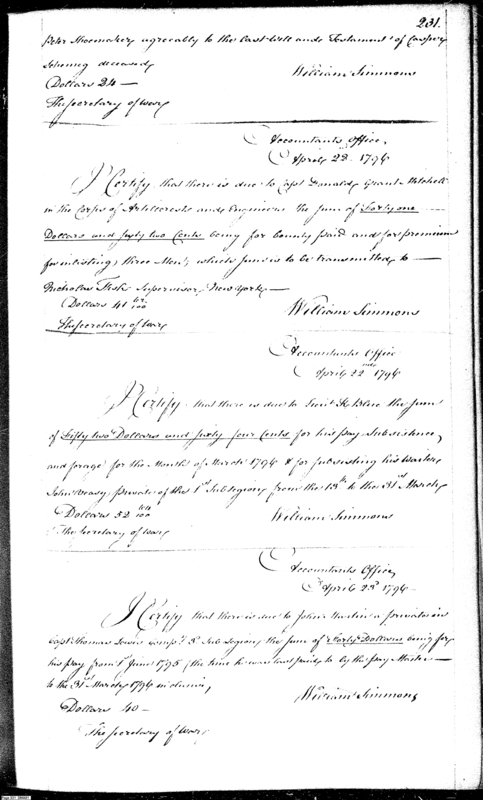 231.
Peter Shoemaker, agreeably to the Last Will and Testament of Casper
deceased,
Dollars 24 —
The Secretary of War,
Accountants Office,
April 22d 1796
I Certify that there is due to Capt Donald Grant Mitchell
in the Corps of Artillerists and Engineers the sum of Forty one
Dollars and forty two Cents being for bounty paid and for premium
for inlisting three Men, which sum is to be transmitted to —
Nicholas Fish Supervisor, New York —
Dollars 41 42/100
The Secretary of War,
William Simmons
William Simmons
Accountants Office
April 22nd 1796
I Certify that there is due to Lieut the sum
of Fifty two Dollars and sixty four Cents for his pay Subsistence,
and forage for the Month of March 1796 & for subsisting his Waiter
John private of the 1st Sub Legion, from the 13th to the 31st March,
Dollars 52 64/100
William Simmons
The Secretary of War
Accountants Office,
April 23d 1796 —
I Certify that there is due to John a private in
Capt Thomas Lewis Compy 3d Sub Legion, the sum of Forty Dollars being for
his pay from 1st June 1795 (the time he was last paid to by the Pay Master —
to the 31st March 1796 inclusive,
Dollars 40 —
William Simmons
The Secretary of War,